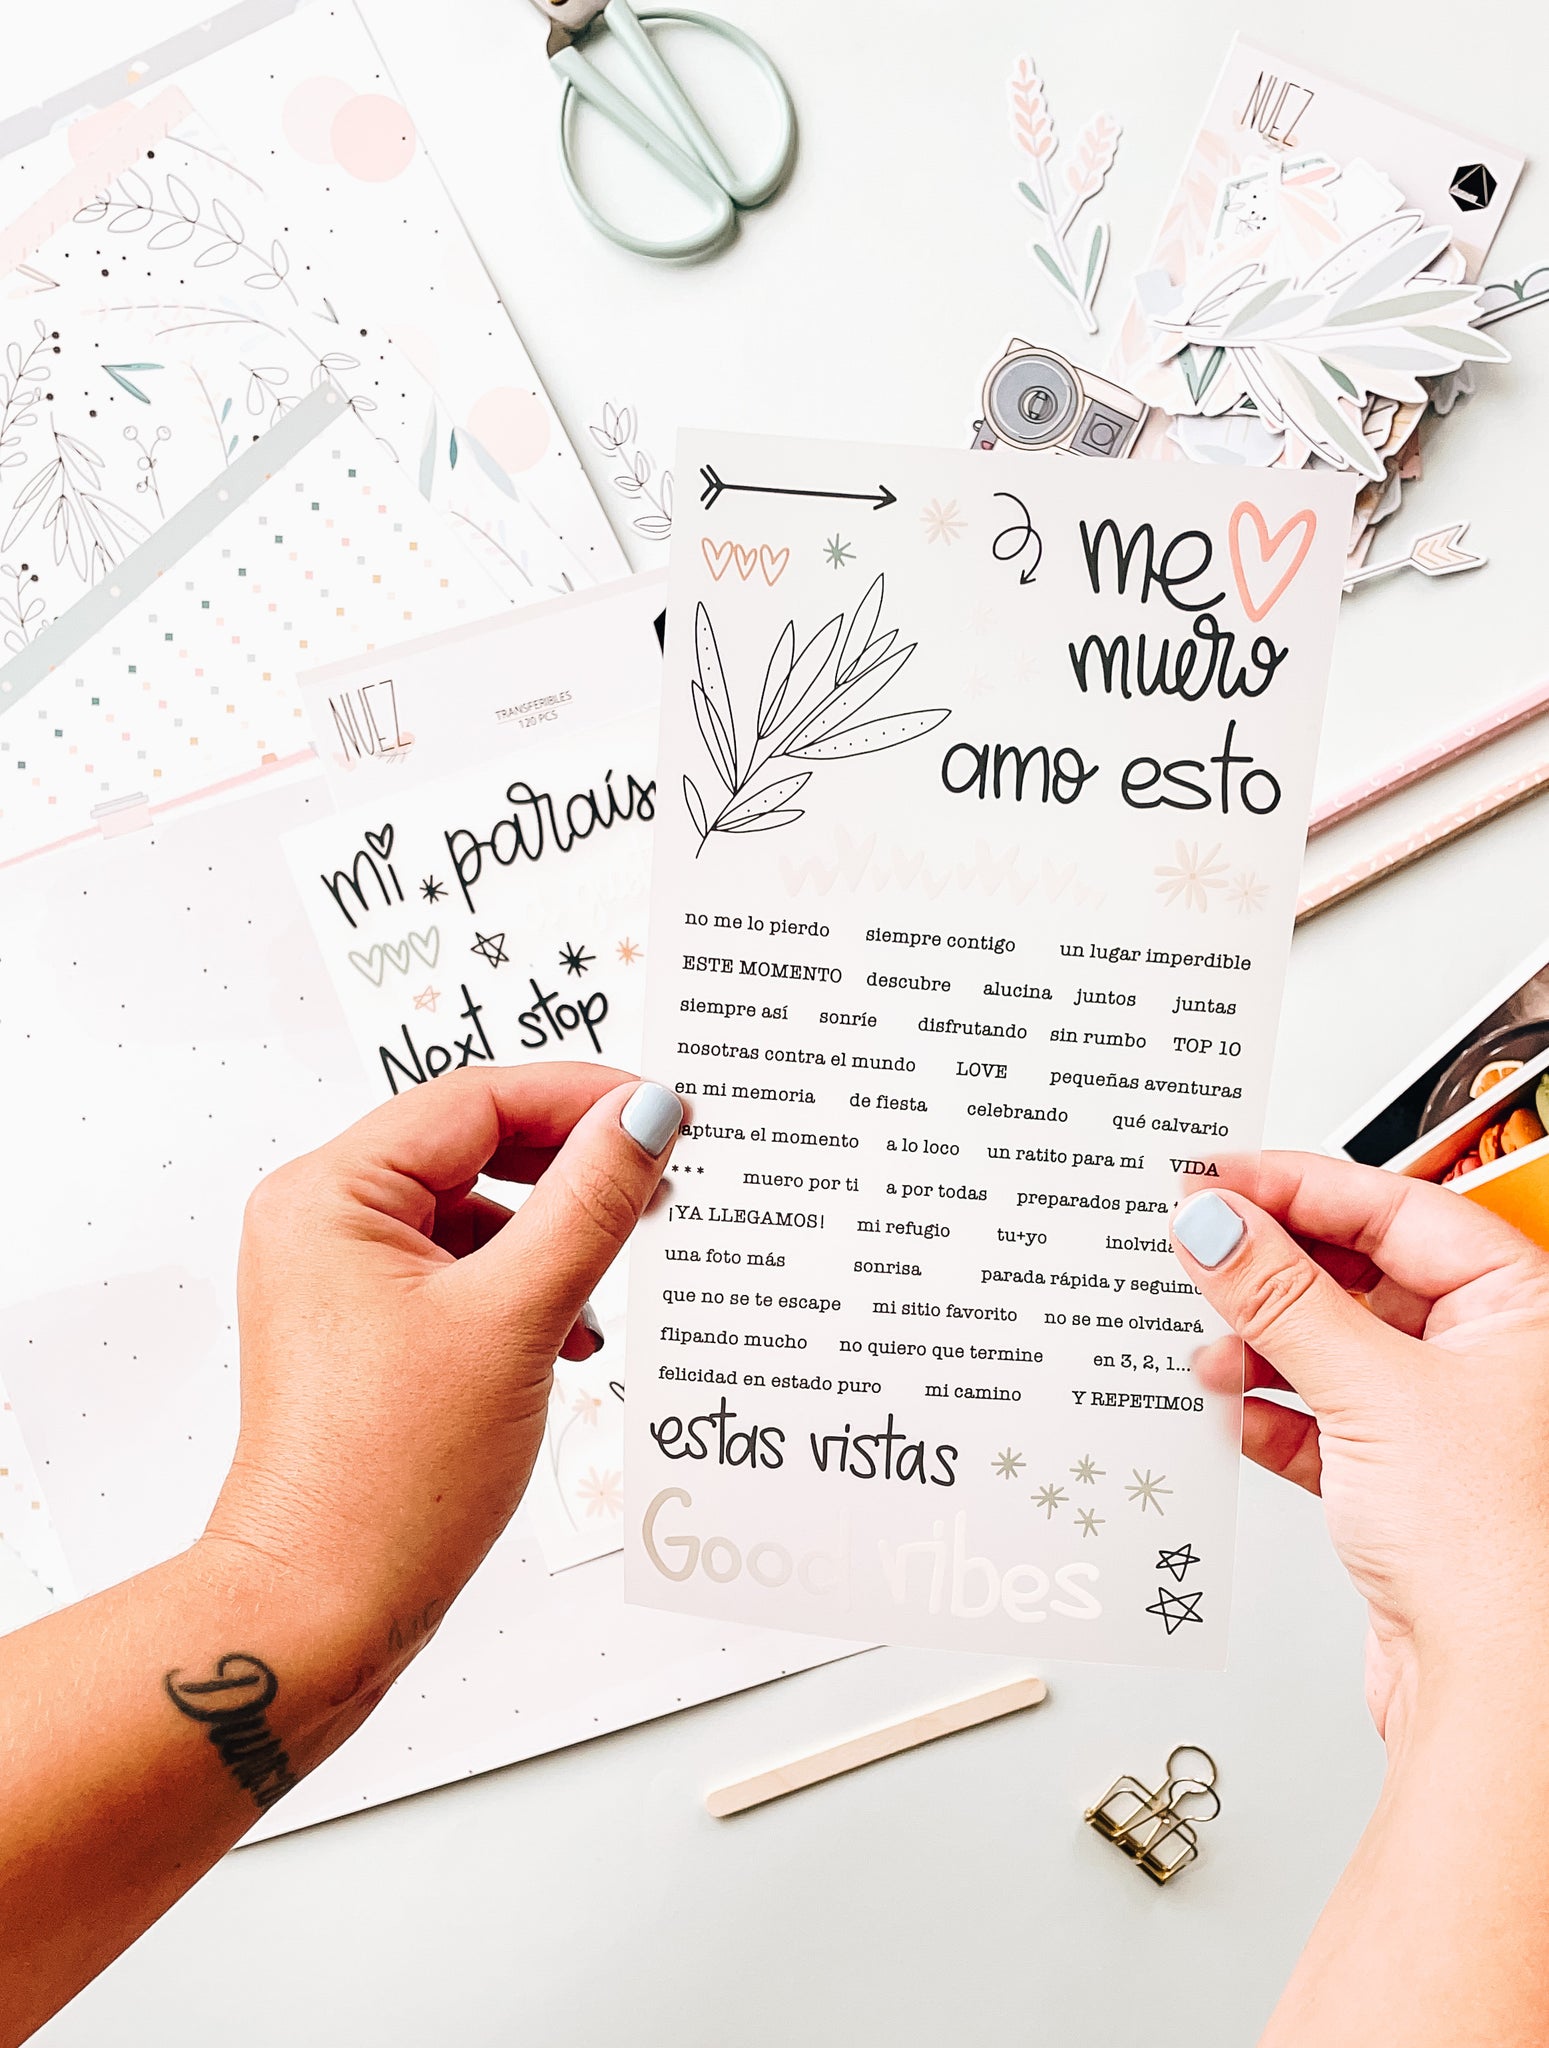 NUEZ
me
muero
amo esto
NUEZ
TRANSFERIBLES
120 PCS
mi paraís
Next stop
no me lo pierdo siempre contigo un lugar imperdible
ESTE MOMENTO descubre alucina juntos juntas
siempre así sonríe disfrutando sin rumbo TOP 10
nosotras contra el mundo LOVE pequeñas aventuras
en mi memoria de fiesta celebrando qué calvario
aptura el momento a lo loco un ratito para mí VIDA
*** muero por ti a por todas preparados para
¡YA LLEGAMOS! mi refugio tu+yo inolvida
una foto más sonrisa parada rápida y seguimo
que no se te escape mi sitio favorito no se me olvidará
flipando mucho no quiero que termine en 3, 2, 1...
felicidad en estado puro mi camino Y REPETIMOS
estas vistas
Good vibes